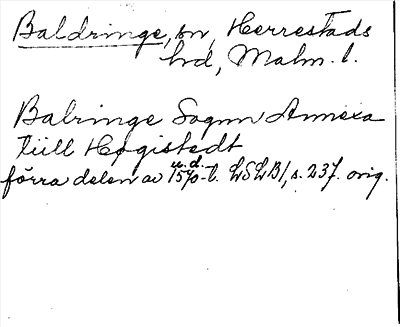 Baldringe, sn, Herrestads
hd, Malm. l.
Balringe Sognn Annexa
tiill Høgistedt
u.d.
förra delen av 1570-t. LSLB1, s. 237. orig.